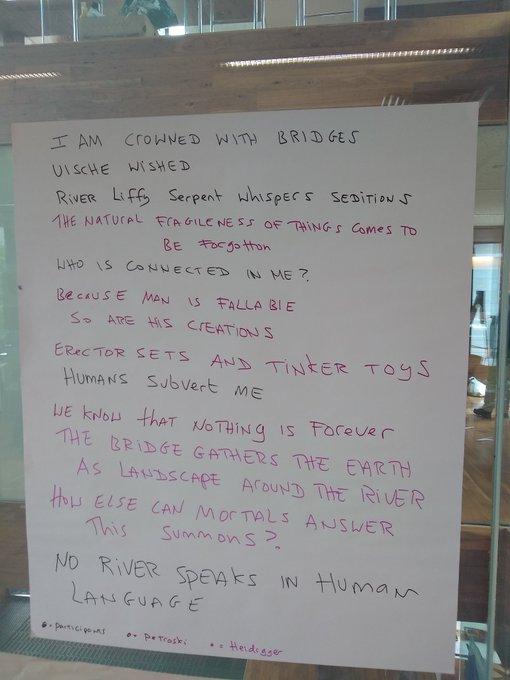 I AM CROWNED WITH BRIDGES
UISCHE WISHED
RIVER Liffy Serpent whispers SEDITIONS
THE NATURAL FRAGILENESS OF THINGS COMES TO
BE Forgotton
WHO IS CONNECTED IN ME?
BECAUSE MAN IS FALLABLE
SO ARE HIS CREATIONS
ERECTOR SETS AND TINKER TOYS
HUMANS SUBVERT ME
WE KNOW that NOTHING IS Forever
THE BRIDGE GATHERS THE EARTH
AS LANDSCAPE AROUND THE RIVER
HOW ELSE CAN MORTALS ANSWER
This Summons?
NO RIVER SPEAKS IN HUMAN
LANGUAGE
•= participants •= Petroski •= Heidigger